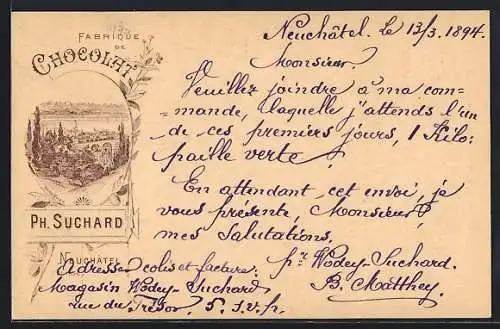 FABRIQUE
DE
CHOCOLAT
PH. SUCHARD
NEUCHÂTEL
Neuchâtel. Le 13/3. 1894.
Monsieur.
Veuillez joindre à ma com-
=mande, laquelle j'attends l'un
de ces premiers jours, 1 Kilo:
paille verte.
En attendant cet envoi, je
vous présente, Monsieur!
mes Salutations.
pr Wodey-Suchard.
B. Matthey.
Adresser colis et facture:
Magasin Wodey-Suchard
rue du Trésor. 5. s.v.p.